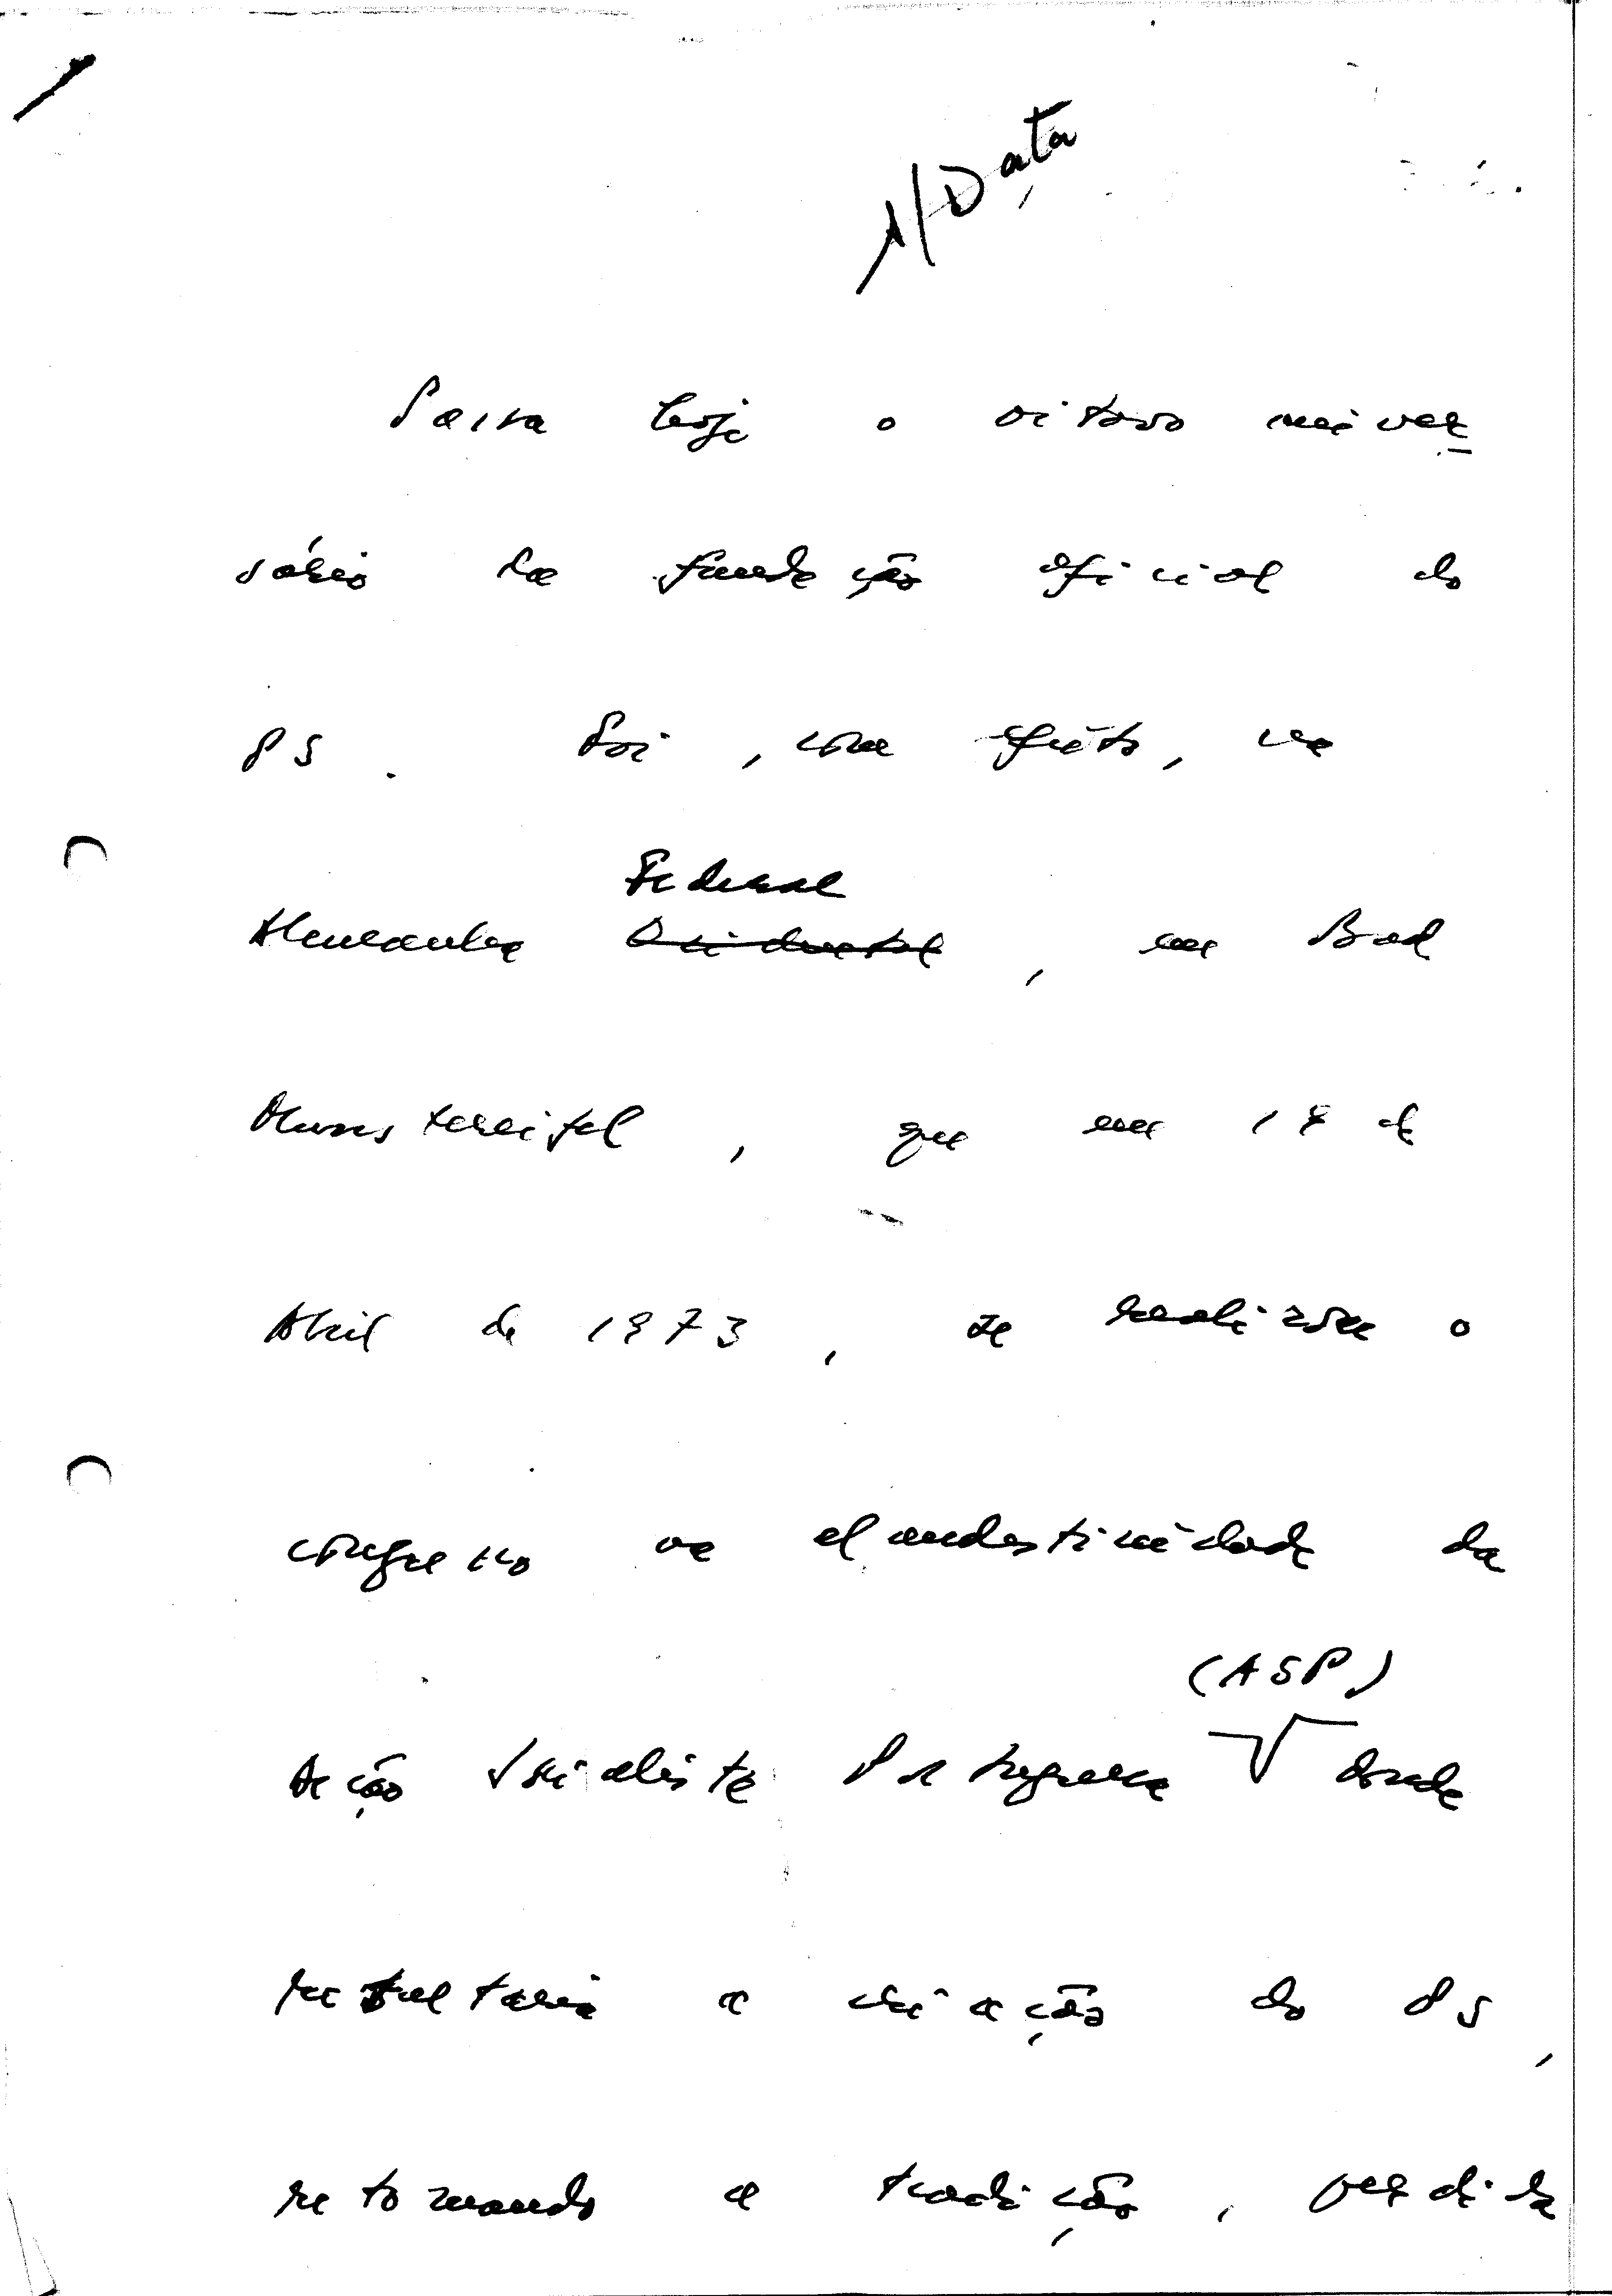 s/Data
Passa hoje o oitavo aniver
sário da fundação oficial do
PS. Foi, com efeito, na
Federal
Alemanha Ocidental, em Bad
Munstereifel, que em 18 de
Abril de 1973, se realizou o
congresso na clandestinidade da
(ASP)
Acção Socialista Portuguesa donde
resultaria a criação do PS,
retomando a tradição, perdida